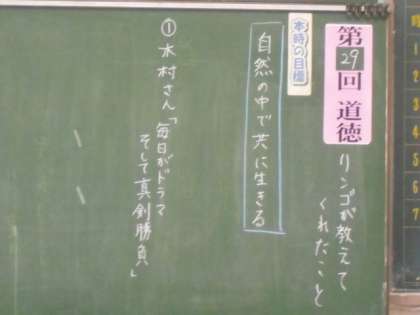 第29回 道徳
リンゴが教えて
くれたこと
本時の目標
自然の中で共に生きる
①木村さん「毎日がドラマ
そして真剣勝負」